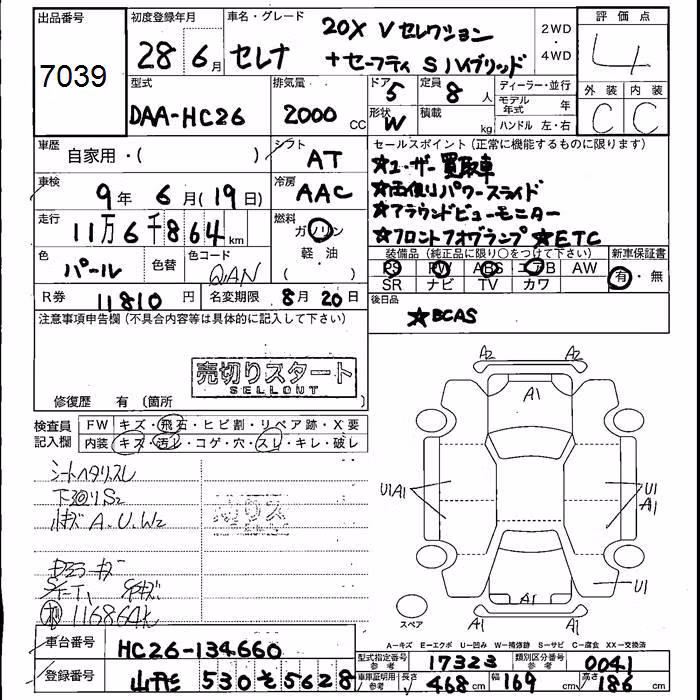 出品番号
7039
初度登録年月
28年 6月
車名・グレード
セレナ
20X Vセレクション
+セーフティ Sハイブリッド
2WD
・
4WD
評価点
4
外装 内装
C C
型式
DAA-HC26
排気量
2000 CC
ドア 5
形状 W
定員 8 人
積載 kg
ディーラー・並行
モデル年式 年
ハンドル 左・右
車歴
自家用・( )
シフト AT
車検
9年 6月(19日)
冷房 AAC
走行
11万6千864km
燃料
ガソリン
軽・油
色
パール
色替
色コード
QAN
R券 11810 円
名変期限 8月20日
セールスポイント(正常に機能するものに限ります)
★ユーザー買取車
★両側パワースライド
★アラウンドビューモニター
★フロントフォグランプ ★ETC
装備品(純正品に限り○をつけて下さい)
PS PW ABS エアB AW
SR ナビ TV カワ
新車保証書
有・無
後日品
★BCAS
注意事項申告欄(不具合内容等は具体的に記入して下さい)
売切りスタート
SELLOUT
修復歴 有(箇所 )
検査員記入欄
FW キズ・飛石・ヒビ割・リペア跡・X要
内装 キズ・汚レ・コゲ・穴・スレ・キレ・破レ
シートヘタリ、スレ
下廻りS2
小キズ A.U.W2
116864k
A2 A2
A1
U1A1
U1
A1
U1
A1
A1 A1
スペア
A−キズ E−エクボ U−凹み W−補修跡 S−サビ C−腐食 XX−交換済
車台番号 HC26-134660
登録番号 山形 530 そ 5628
型式指定番号 参考 17323
類別区分番号 参考 0041
車庫証明用 参考 長さ 468cm 幅 169cm 高さ 186cm